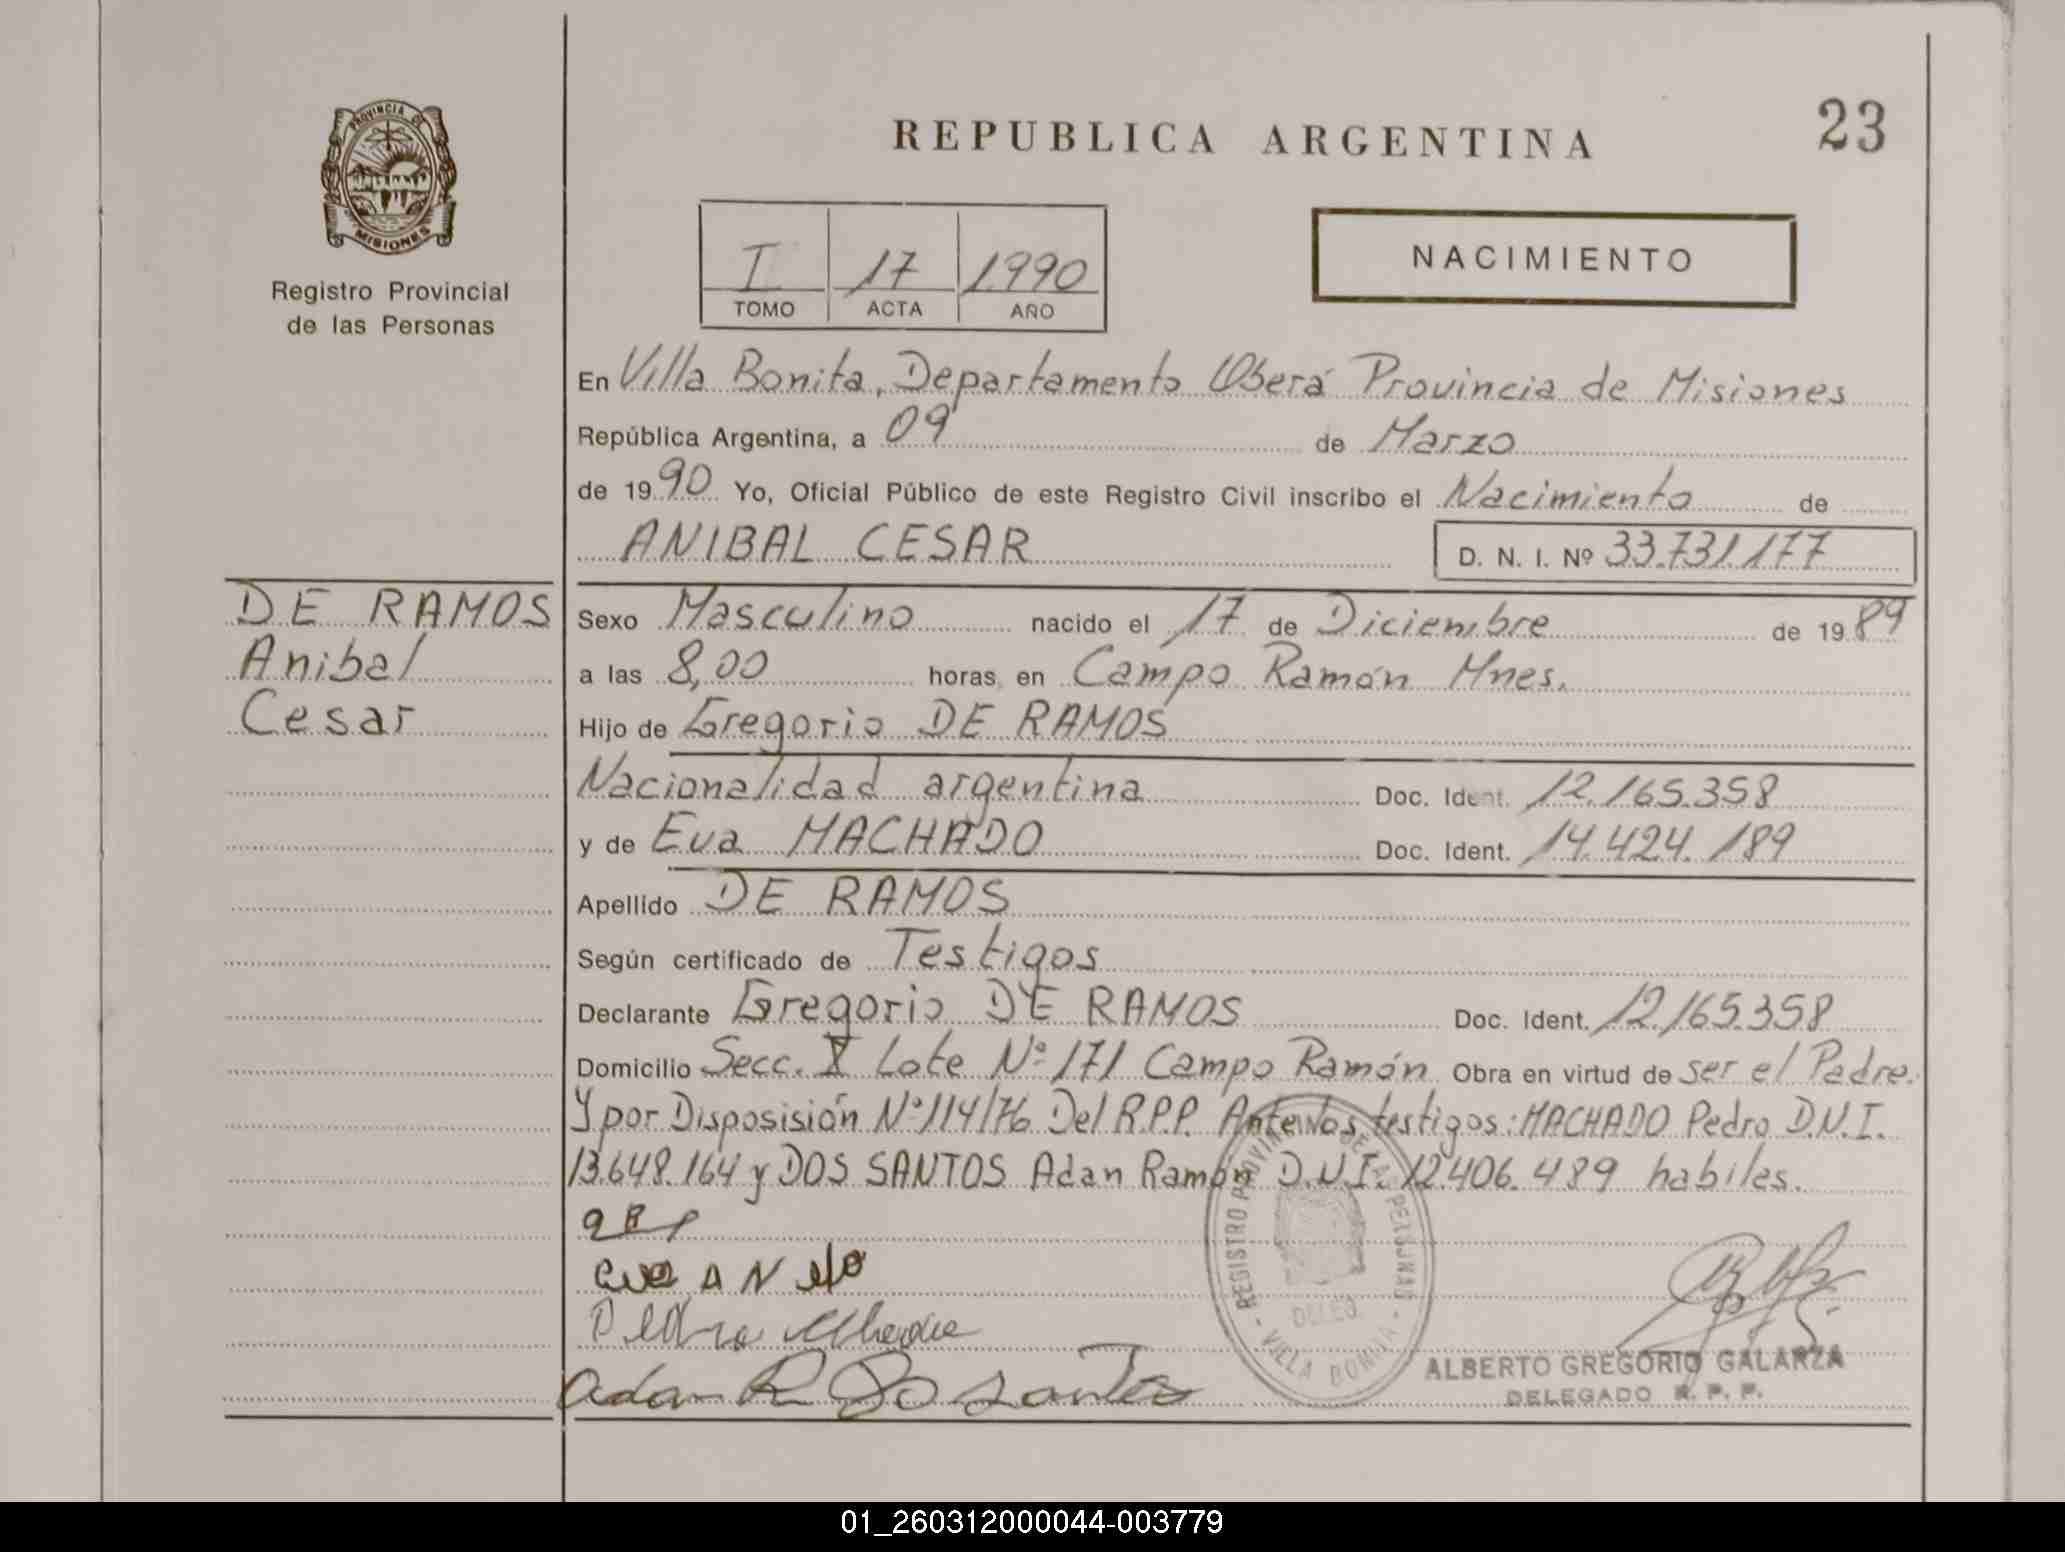 PROVINCIA DE
MISIONES
Registro Provincial
de las Personas
REPUBLICA ARGENTINA
23
I 17 1990
TOMO ACTA AÑO
NACIMIENTO
En Villa Bonita, Departamento Oberá Provincia de Misiones
República Argentina, a 09 de Marzo
de 1990 Yo, Oficial Público de este Registro Civil inscribo el Nacimiento de
ANIBAL CESAR D. N. I. Nº 33.731.177
DE RAMOS
Anibal
Cesar
Sexo Masculino nacido el 17 de Diciembre de 1989
a las 8,00 horas en Campo Ramón Mnes.
Hijo de Gregorio DE RAMOS
Nacionalidad argentina Doc. Ident. 12.165.358
y de Eva MACHADO Doc. Ident. 14.424.189
Apellido DE RAMOS
Según certificado de Testigos
Declarante Gregorio DE RAMOS Doc. Ident. 12.165.358
Domicilio Secc. X Lote Nº 171 Campo Ramón Obra en virtud de ser el Padre.
Y por Disposisión Nº 114/76 Del R.P.P. Ante los testigos: MACHADO Pedro D.N.I.
13.648.164 y DOS SANTOS Adan Ramón D.N.I. 12.406.489 habiles.
REGISTRO PROVINCIAL DE LAS PERSONAS
DELEG.
- VILLA BONITA -
Adan R Do santos
ALBERTO GREGORIO GALARZA
DELEGADO R. P. P.
01_260312000044-003779